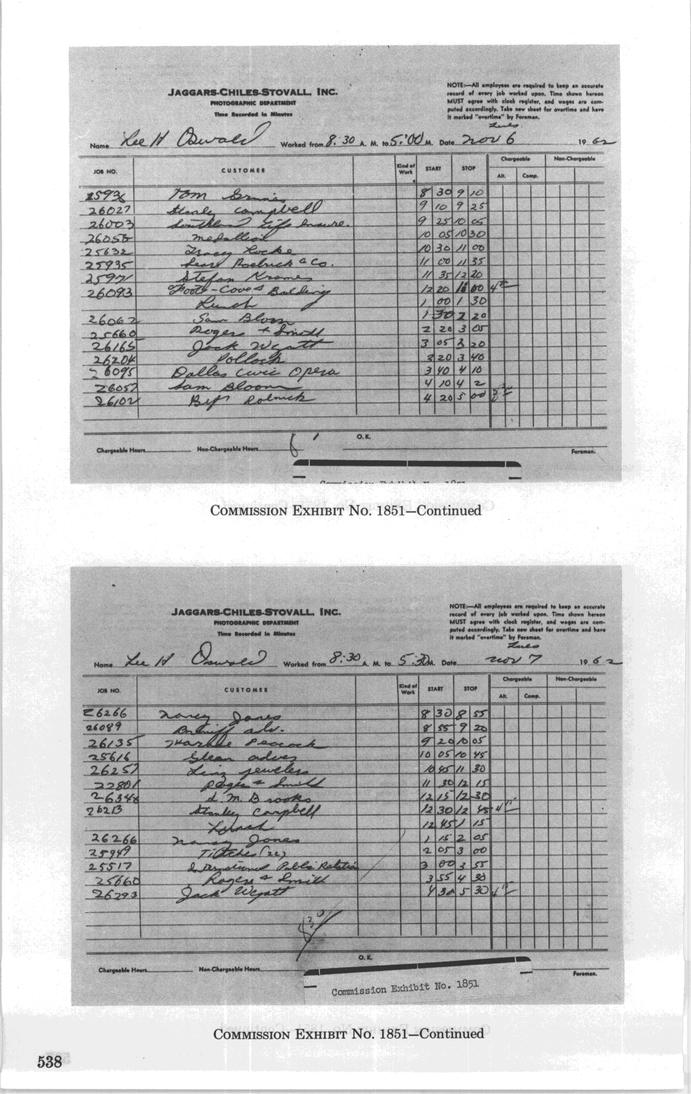 JAGGARS-CHILES-STOVALL, INC.
PHOTOGRAPHIC DEPARTMENT
Time Recorded in Minutes
NOTE:—All employees are required to keep an accurate
record of every job worked upon. Time shown hereon
MUST agree with clock register, and wages are com-
puted accordingly. Take new sheet for overtime and have
it marked "overtime" by Foreman.
Tues
Name Lee H Oswald Worked from 8:30 A. M. to 5:00 M. Date Nov 6 1962
JOB NO. CUSTOMER Kind of Work START STOP Chargeable Non-Chargeable
Alt. Comp.
Tom 8 30 9 10
26027 Stanly Campbell 9 10 9 25
26003 Southland Life Insure. 9 25 10 05
26058 Medallion 10 05 10 30
25632 Tracy Locke 10 30 11 00
25935 Sears Roebuck & Co. 11 00 11 35
Stefan 11 35 12 20
26093 12 20
Lunch 1 00 1 30
26062 Sam Bloom 1 30 2 20
25660 Rogers & Smith 2 20 3 05
26165 Jack Wyatt 3 05 3 20
26204 Pollock 3 20 3 40
26095 Dallas Civic Opera 3 40 4 10
26057 Sam Bloom 4 10 4 2
26102 4 20 5 00
Chargeable Hours Non-Chargeable Hours O.K. Foreman.
COMMISSION EXHIBIT No. 1851—Continued
JAGGARS-CHILES-STOVALL, INC.
PHOTOGRAPHIC DEPARTMENT
Time Recorded in Minutes
NOTE:—All employees are required to keep an accurate
record of every job worked upon. Time shown hereon
MUST agree with clock register, and wages are com-
puted accordingly. Take new sheet for overtime and have
it marked "overtime" by Foreman.
Tues
Name Lee H Oswald Worked from 8:30 A. M. to 5:30 M. Date Nov 7 1962
JOB NO. CUSTOMER Kind of Work START STOP Chargeable Non-Chargeable
Alt. Comp.
26266 Nancy Jones 8 30 8 55
26089 Braniff adv. 8 55 9 20
26135 Peacock 9 20 10 05
25616 adver 10 05 10 45
26257 jewelers 10 45 11 30
22801 Rogers & Smith 11 30 12 15
26348 Brooks 12 15 12 30
26213 Stanley Campbell 12 30 12 45
Lunch 12 45 1 15
26266 Nancy Jones 1 15 2 05
25949 Titches (22) 2 05 3 00
25517 International Public Relation 3 00 3 55
25660 Rogers & Smith 3 55 4 30
26293 Jack Wyatt 4 30 5 30
Chargeable Hours Non-Chargeable Hours O.K. Foreman.
Commission Exhibit No. 1851
COMMISSION EXHIBIT No. 1851—Continued
538